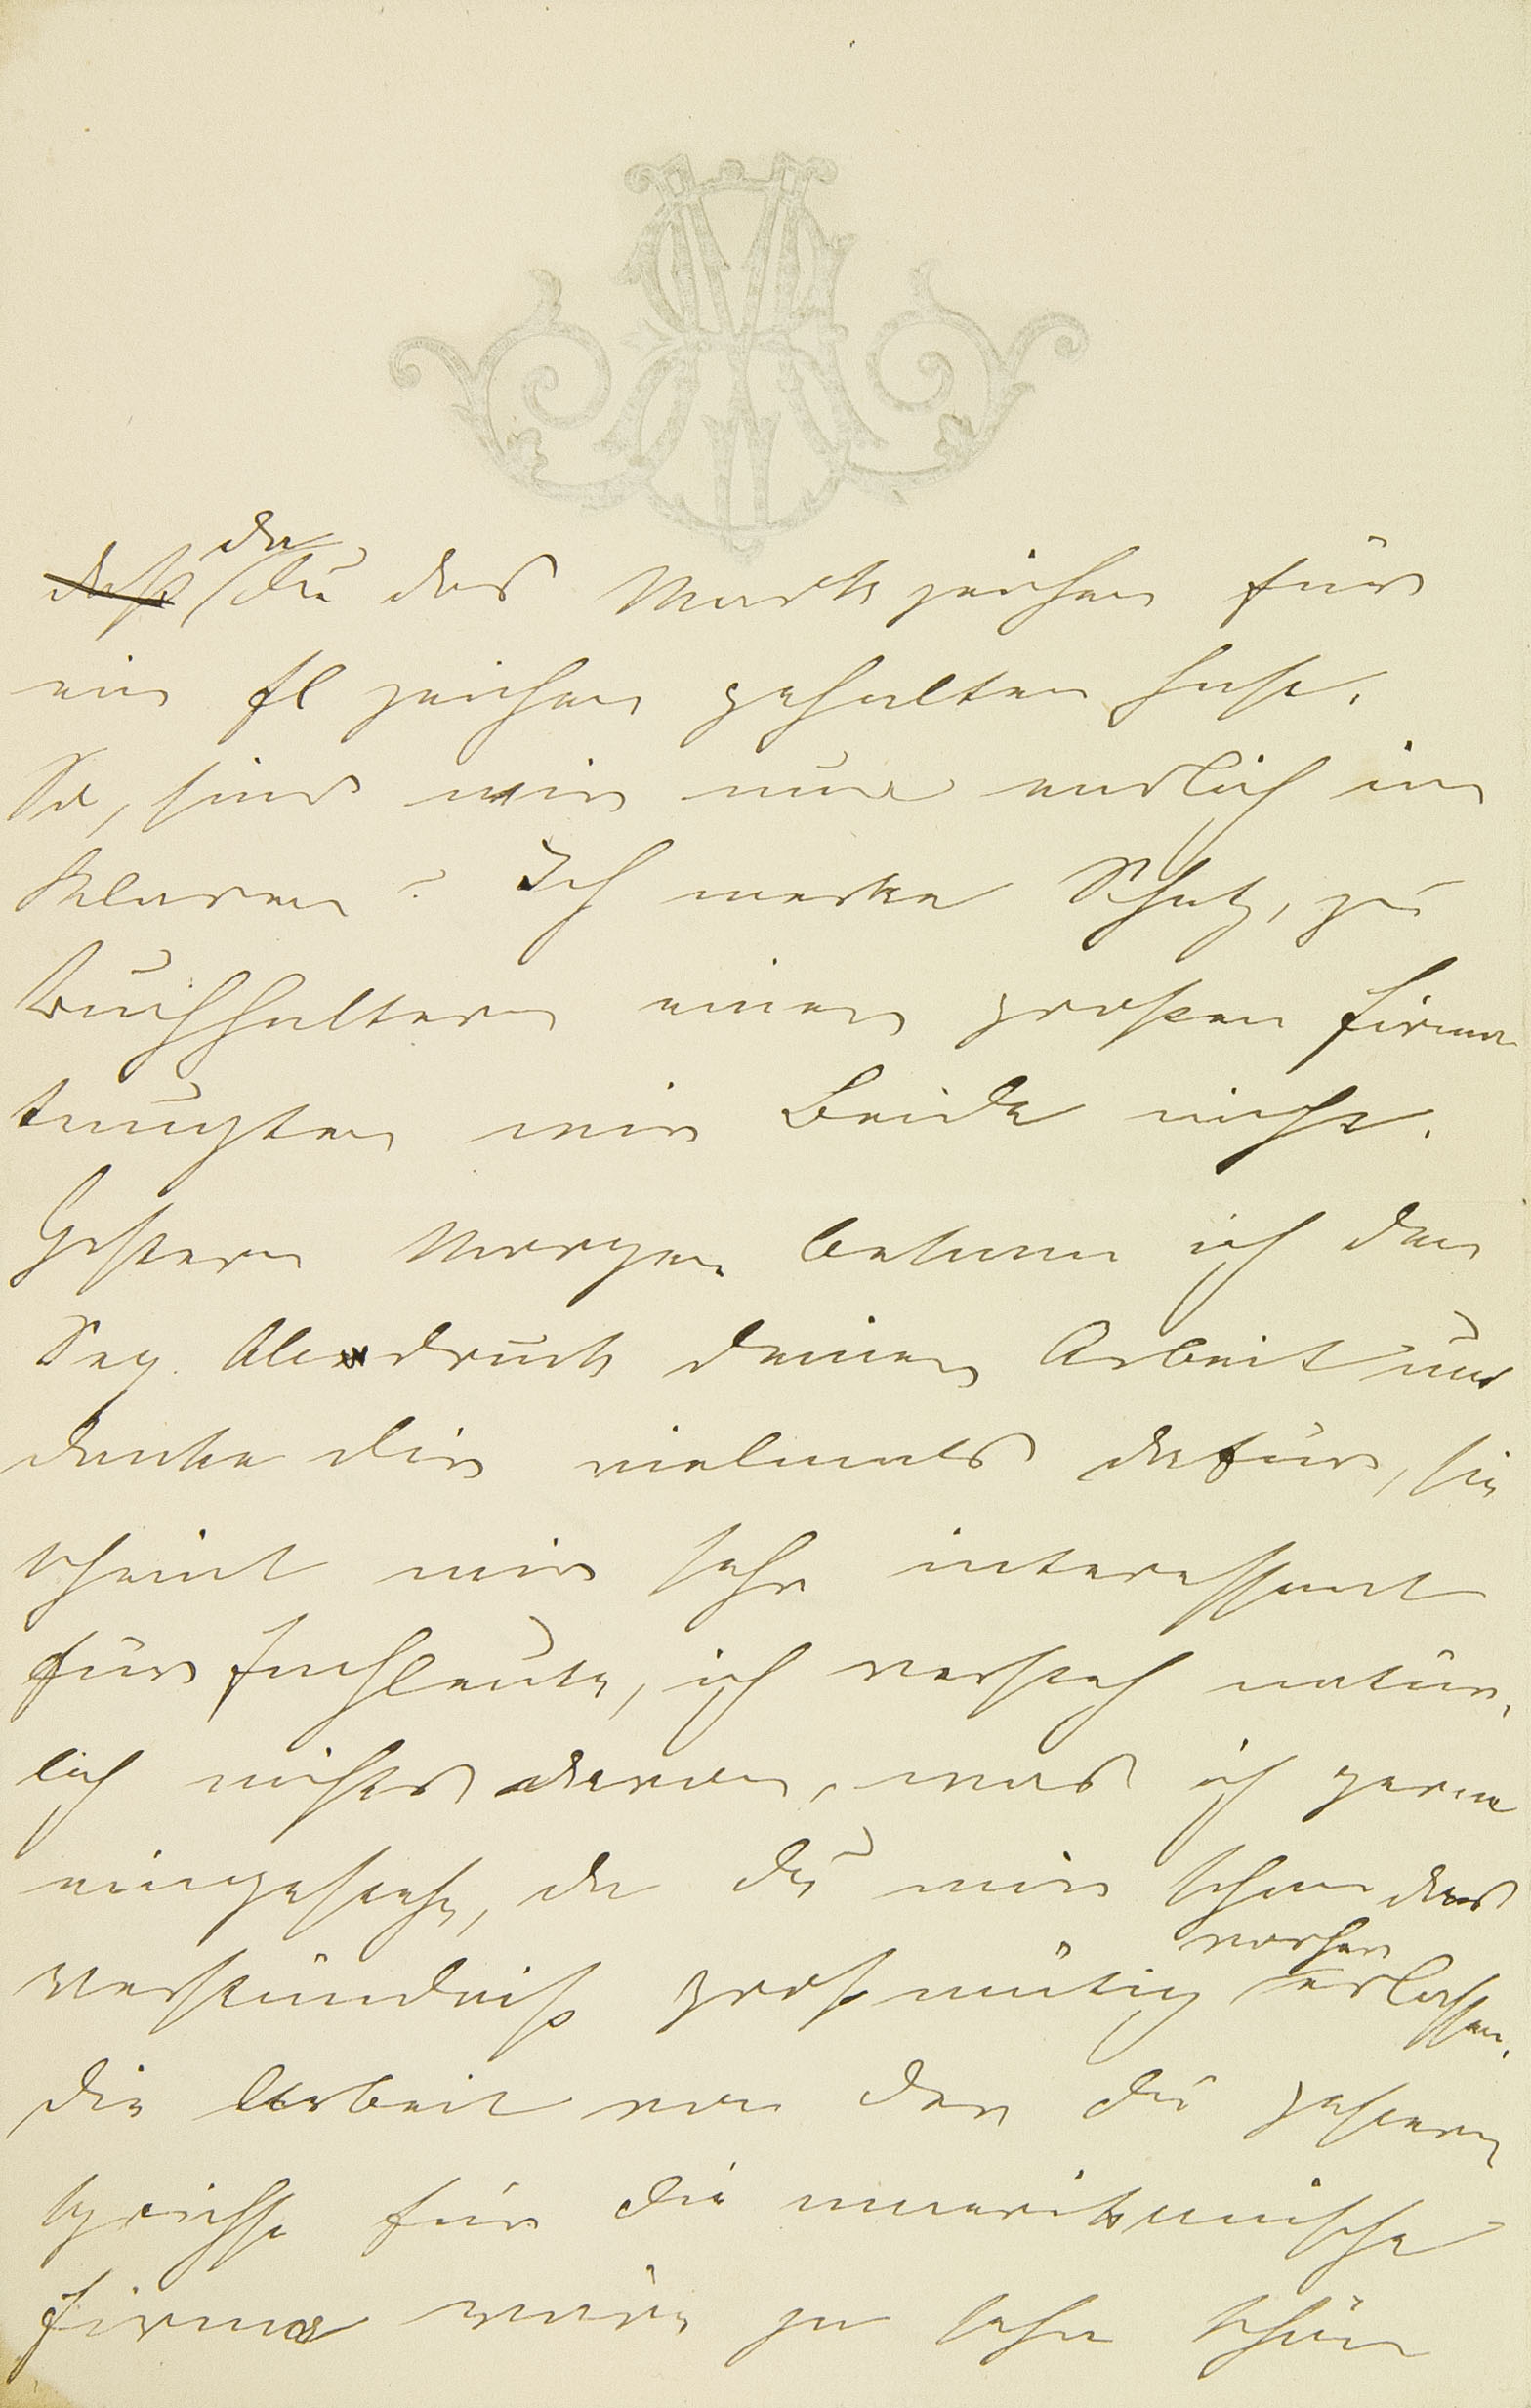 da
daß du das Mark zeichen für
ein fl zeichen gehalten hast.
So, sind wir nun endlich im
Klaren? Ich merke Schatz, zu
Buchhaltern einer großen Firma
taugten wir Beide nicht.
Gestern Morgen bekam ich den
Sep. Abdruck deiner Arbeit und
danke dir vielmals dafür, sie
scheint mir sehr interessant
für Fachleute, ich versteh natür,
lich nichts davon, was ich gerne
eingestehe, da du mir schon das
vorher
Verständniß großmütig erlassen.
Die Arbeit von der du gestern
sprichst für die amerikanische
Firma wäre ja sehr schön